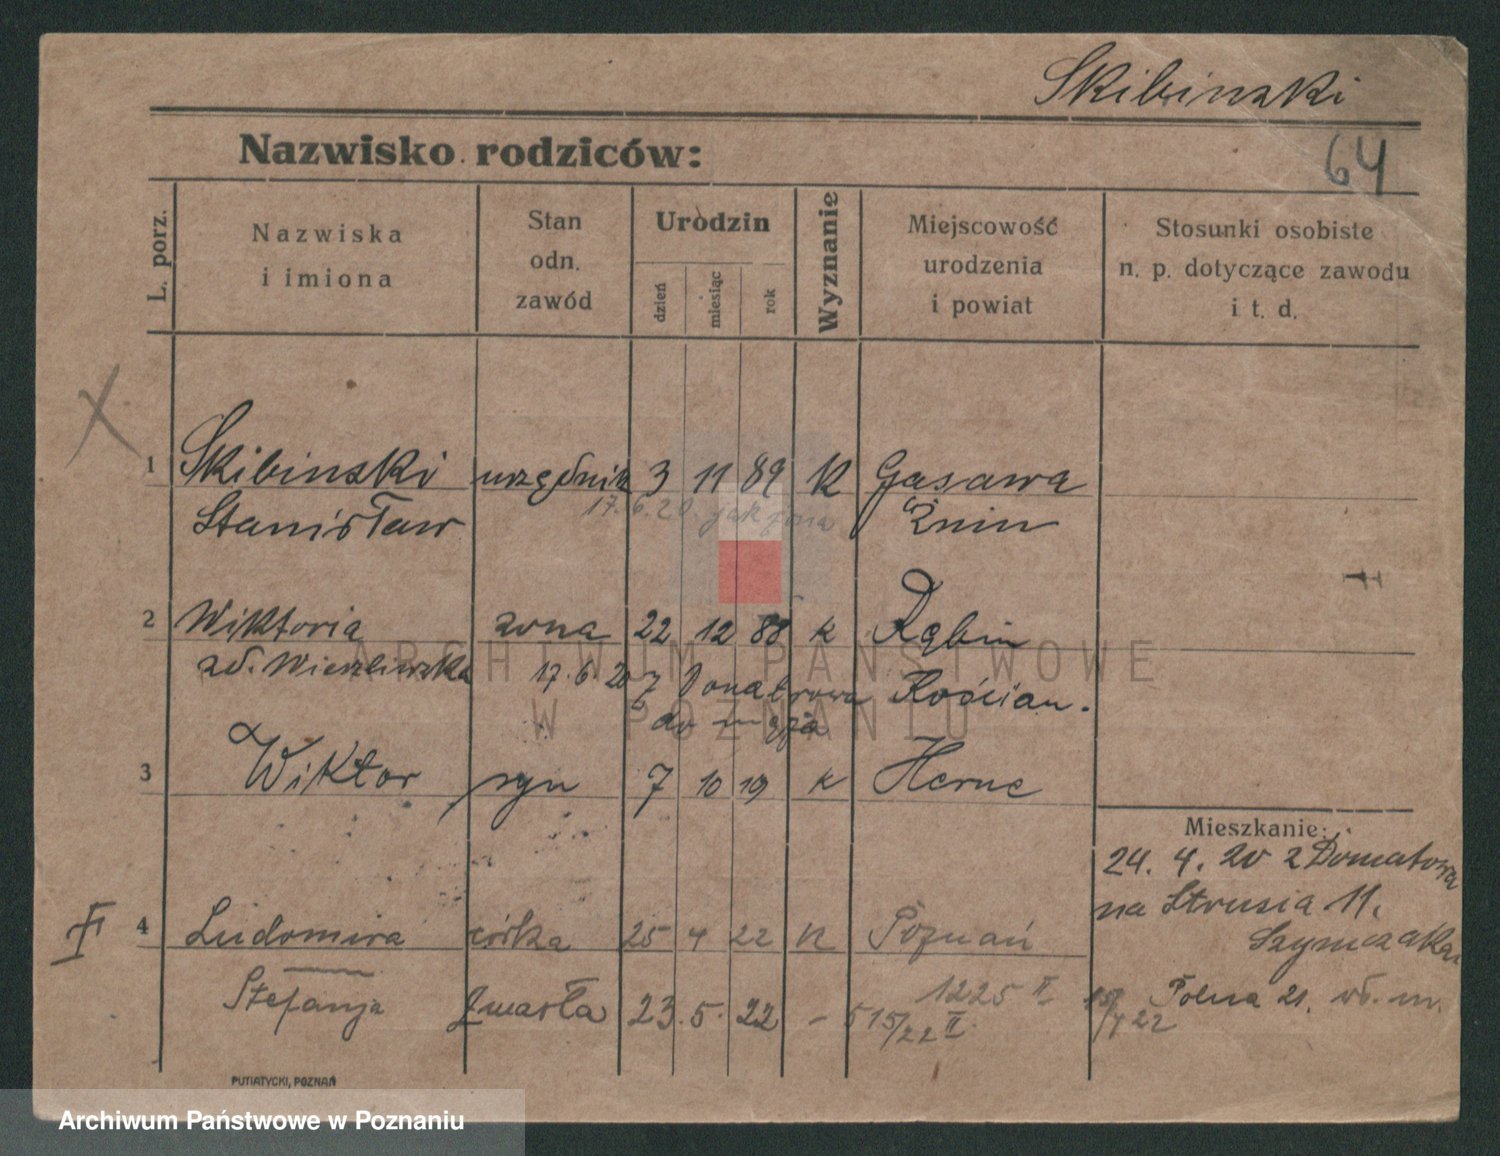 Skibinski
64
Nazwisko rodziców:
L. porz.
Nazwiska
i imiona
Stan
odn.
zawód
Urodzin
dzień
miesiąc
rok
Wyznanie
Miejscowość
urodzenia
i powiat
Stosunki osobiste
n. p. dotyczące zawodu
i t. d.
X
1 Skibinski urzędnik 3 11 89 k Gasawa
17.6.20.
Stanisław Żnin
2 Wiktoria zona 22 12 88 k
17.6.20 Kościan.
do męża
3 Wiktor syn 7 10 19 k Herne
Mieszkanie:
24. 4. 20 z
na Strusia 11.
4 Ludomira córka 25 4 22 k Poznań
Stefanja zmarła 23. 5. 22 - 515/22 II.
1225 II
Polna 21.
PUTIATYCKI, POZNAŃ
ARCHIWUM PAŃSTWOWE
W POZNANIU
Archiwum Państwowe w Poznaniu